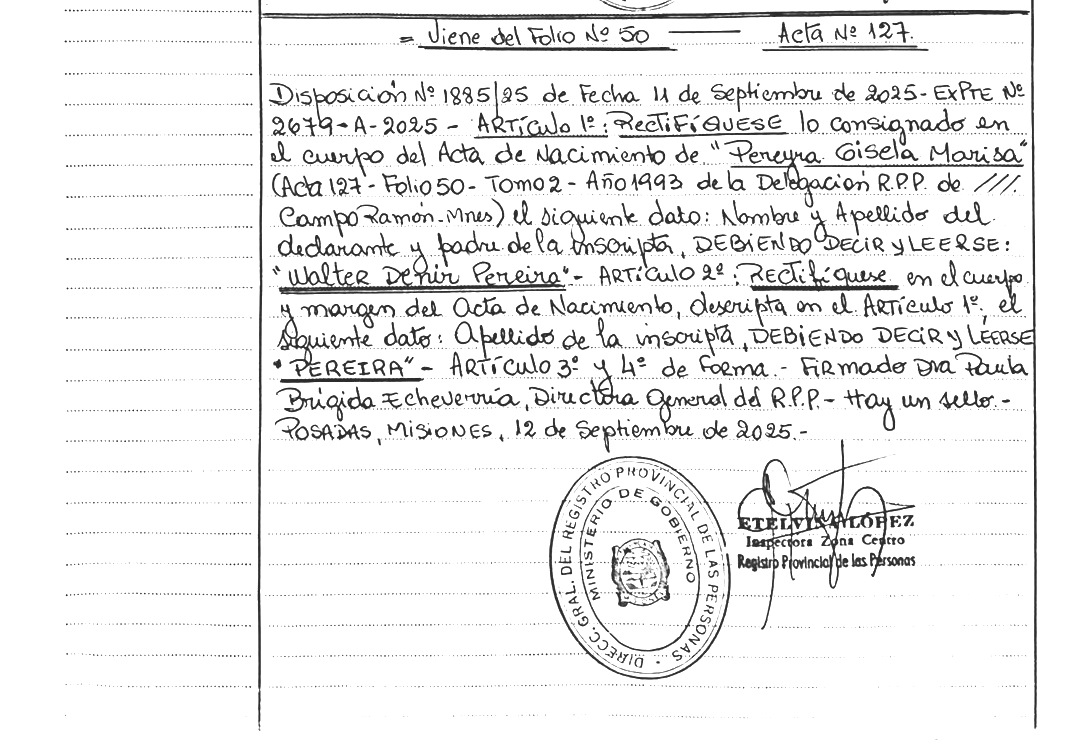 = Viene del Folio Nº 50 —— Acta Nº 127.
Disposición Nº 1885/25 de Fecha 11 de Septiembre de 2025 - ExPTE Nº
2679-A-2025 - ARTÍCULO 1º: RECTIFÍQUESE lo consignado en
el cuerpo del Acta de Nacimiento de "Pereyra Gisela Marisa"
(Acta 127 - Folio 50 - Tomo 2 - Año 1993 de la Delegación R.P.P. de ///.
Campo Ramón - Mnes) el siguiente dato: Nombre y Apellido del
declarante y padre de la inscripta, DEBIENDO DECIR y LEERSE:
"Walter Denir Pereira" - ARTÍCULO 2º: Rectifíquese en el cuerpo
y margen del Acta de Nacimiento, descripta en el ARTÍCULO 1º, el
siguiente dato: Apellido de la inscripta, DEBIENDO DECIR y LEERSE
"PEREIRA" - ARTÍCULO 3º y 4º de forma.- FIRMADO Dra Paula
Brígida Echeverría, Directora General del R.P.P. - Hay un sello.-
POSADAS, MISIONES, 12 de Septiembre de 2025.-
DIRECC. GRAL. DEL REGISTRO PROVINCIAL DE LAS PERSONAS
MINISTERIO DE GOBIERNO
ETELVINA LÓPEZ
Inspectora Zona Centro
Registro Provincial de las Personas